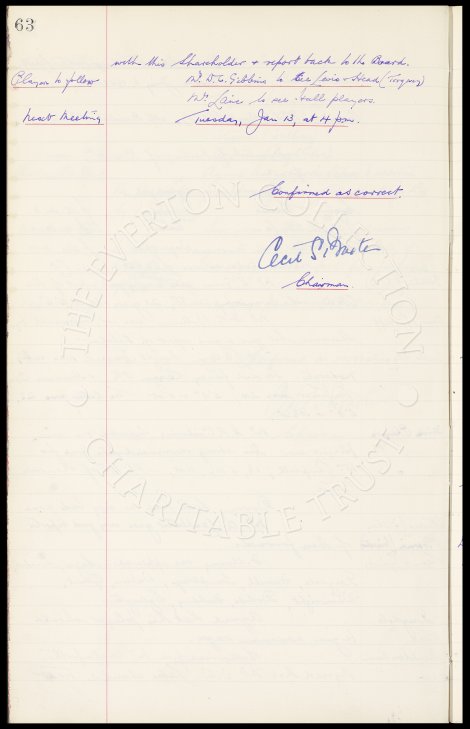 63
with this Shareholder & report back to the Board.
Players to follow
Mr. D.T. Gibbins to see Lewis & Head (Torquay)
Mr. to see Hull players.
Next Meeting
Tuesday, Jan 13, at 4 pm.
Confirmed as correct.
Cecil S.
Chairman.
THE EVERTON COLLECTION
CHARITABLE TRUST